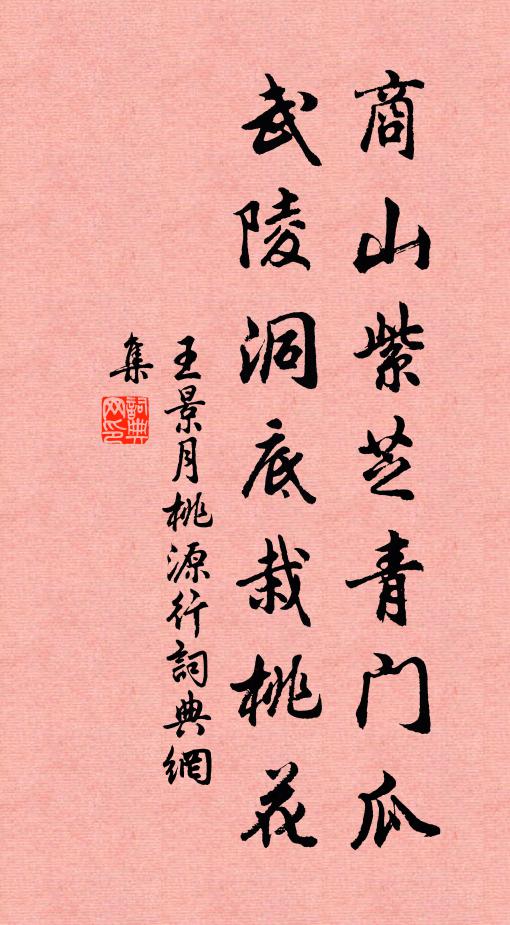 商山紫芝青门瓜
武陵洞底栽桃花
王景月桃源行詞典網
集
詞典
网印